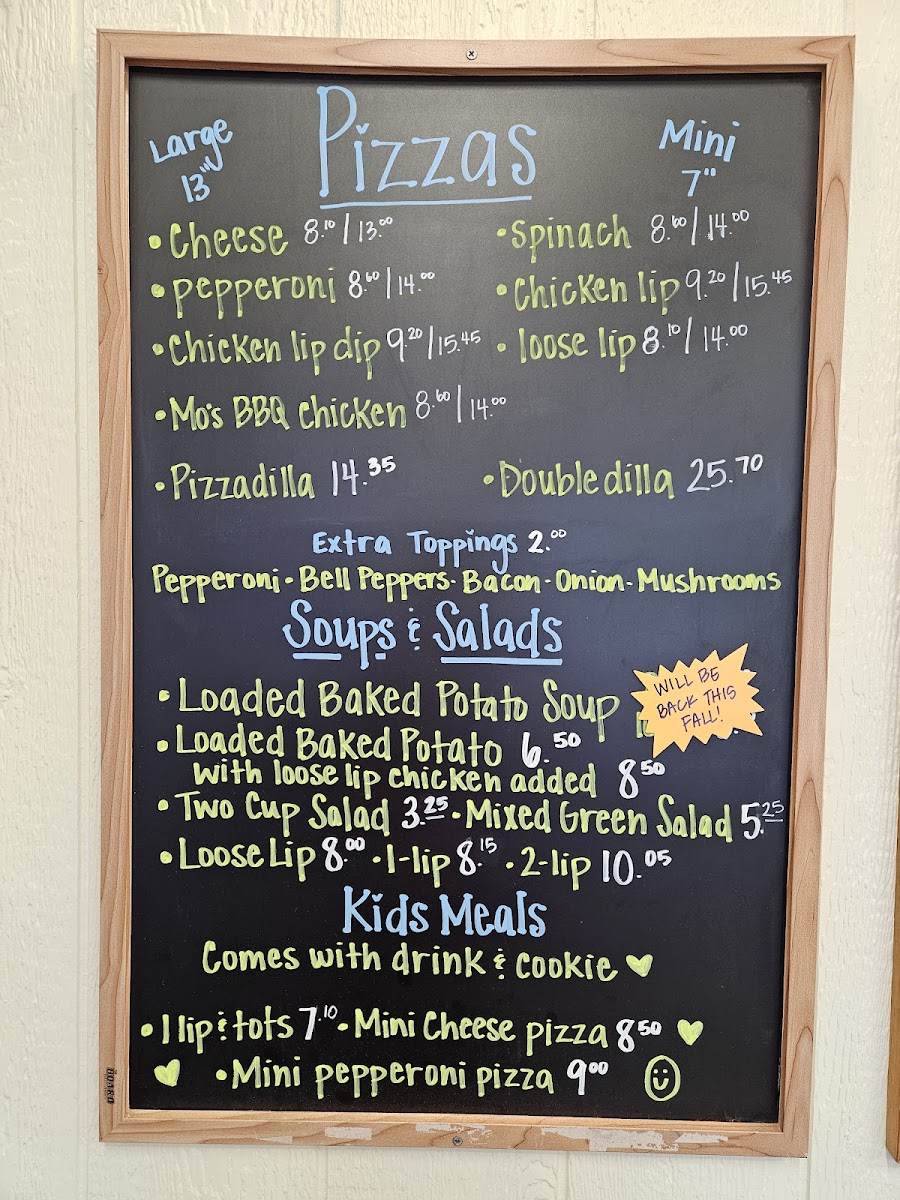 Large 13" Pizzas Mini 7"
•Cheese 8.10/13.00 •Spinach 8.60/14.00
•pepperoni 8.60/14.00 •Chicken lip 9.20/15.45
•Chicken lip dip 9.20/15.45 •loose lip 8.10/14.00
•Mo's BBQ chicken 8.60/14.00
•Pizzadilla 14.35 •Doubledilla 25.70
Extra Toppings 2.00
Pepperoni•Bell Peppers•Bacon•Onion•Mushrooms
Soups & Salads
•Loaded Baked Potato Soup
WILL BE
BACK THIS
FALL!
•Loaded Baked Potato 6.50
with loose lip chicken added 8.50
•Two Cup Salad 3.25 •Mixed Green Salad 5.25
•Loose Lip 8.00 •1-lip 8.15 •2-lip 10.05
Kids Meals
Comes with drink & cookie
•1 lip & tots 7.10 •Mini Cheese pizza 8.50
•Mini pepperoni pizza 9.00